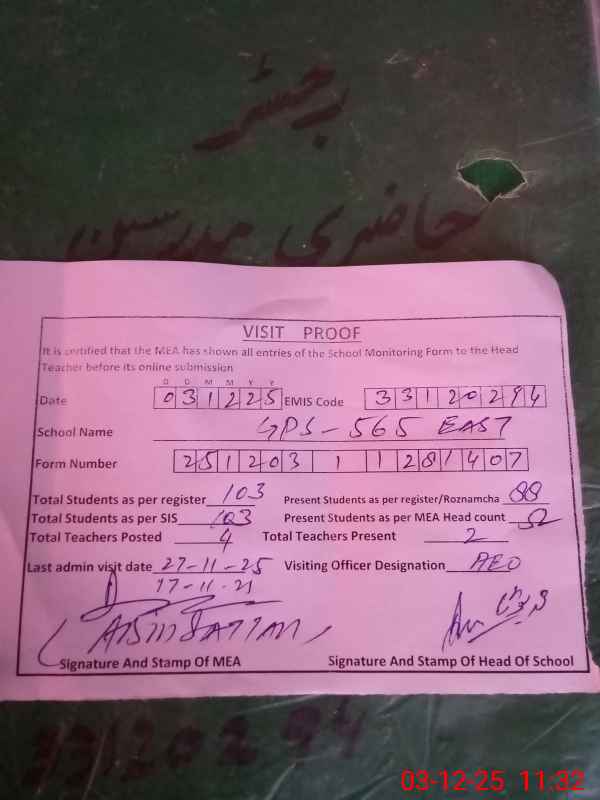 رجسٹر
حاضری مدرسین
VISIT PROOF
It is certified that the MEA has shown all entries of the School Monitoring Form to the Head
Teacher before its online submission
D D M M Y Y
Date 031225 EMIS Code 33120294
School Name GPS-565 EAST
Form Number 251203 1 1281407
Total Students as per register 103 Present Students as per register/Roznamcha 88
Total Students as per SIS 103 Present Students as per MEA Head count 52
Total Teachers Posted 4 Total Teachers Present 2
Last admin visit date 27-11-25 Visiting Officer Designation AEO
17-11-21
Signature And Stamp Of MEA Signature And Stamp Of Head Of School
33120294
03-12-25 11:32